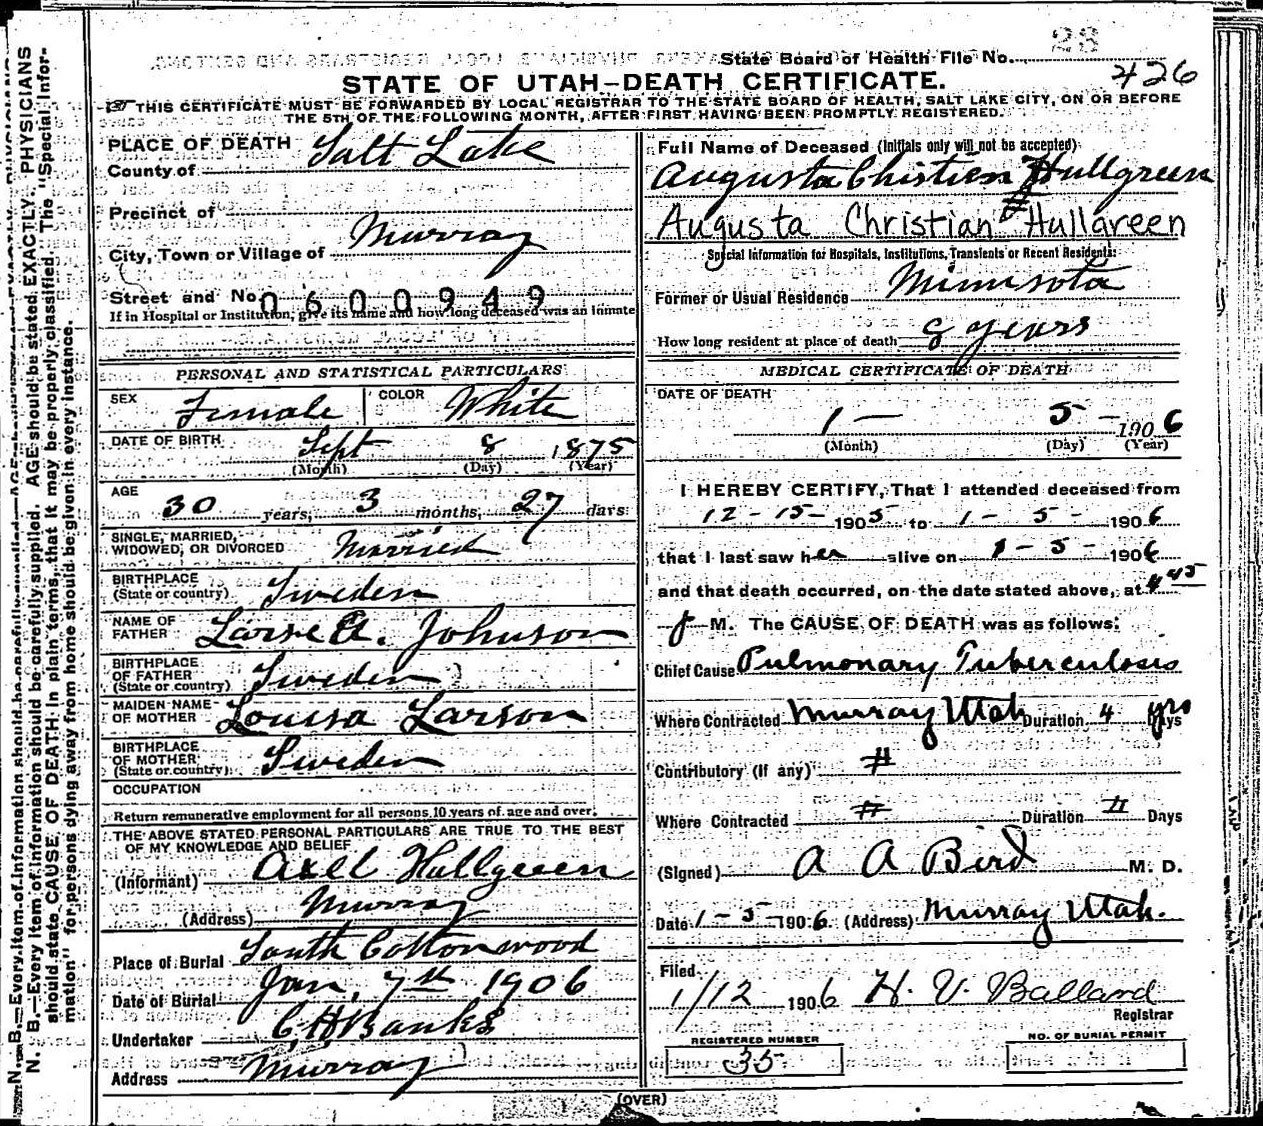 28
State Board of Health File No.
426
STATE OF UTAH—DEATH CERTIFICATE.
THIS CERTIFICATE MUST BE FORWARDED BY LOCAL REGISTRAR TO THE STATE BOARD OF HEALTH, SALT LAKE CITY, ON OR BEFORE
THE 5TH OF THE FOLLOWING MONTH, AFTER FIRST HAVING BEEN PROMPTLY REGISTERED.
PLACE OF DEATH
County of Salt Lake
Precinct of
City, Town or Village of Murray
Street and No.
0600949
If in Hospital or Institution, give its name and how long deceased was an inmate
PERSONAL AND STATISTICAL PARTICULARS
SEX Female COLOR White
DATE OF BIRTH Sept 8 1875
(Month) (Day) (Year)
AGE
30 years, 3 months, 27 days
SINGLE, MARRIED,
WIDOWED, OR DIVORCED Married
BIRTHPLACE
(State or country) Sweden
NAME OF
FATHER Larse A. Johnson
BIRTHPLACE
OF FATHER
(State or country) Sweden
MAIDEN NAME
OF MOTHER Louisa Larson
BIRTHPLACE
OF MOTHER
(State or country) Sweden
OCCUPATION
Return remunerative employment for all persons 10 years of age and over.
THE ABOVE STATED PERSONAL PARTICULARS ARE TRUE TO THE BEST
OF MY KNOWLEDGE AND BELIEF
(Informant) Axel Hullgreen
(Address) Murray
Place of Burial South Cottonwood
Date of Burial Jan, 7th 1906
Undertaker C. H. Banks
Address Murray
Full Name of Deceased (Initials only will not be accepted)
Augusta Chistien Hullgreen
Augusta Christian Hullgreen
Special Information for Hospitals, Institutions, Transients or Recent Residents:
Former or Usual Residence Minnisota
How long resident at place of death 8 years
MEDICAL CERTIFICATE OF DEATH
DATE OF DEATH
1 — 5 — 1906
(Month) (Day) (Year)
I HEREBY CERTIFY, That I attended deceased from
12 - 15 - 1905 to 1 - 5 - 1906
that I last saw her alive on 1 - 5 - 1906
and that death occurred, on the date stated above, at 4 45
P M. The CAUSE OF DEATH was as follows:
Chief Cause Pulmonary Tuberculosis
Where Contracted Murray Utah Duration 4 yrs Days
Contributory (If any) #
Where Contracted # Duration " Days
(Signed) A A Bird M. D.
Date 1 - 5 - 1906 (Address) Murray Utah.
Filed
1/12 1906 H. V. Ballard
Registrar
REGISTERED NUMBER
35
NO. OF BURIAL PERMIT
(OVER)
N. B.—Every item of information should be carefully supplied. AGE should be stated EXACTLY. PHYSICIANS
should state CAUSE OF DEATH in plain terms, that it may be properly classified. The "Special Infor-
mation" for persons dying away from home should be given in every instance.